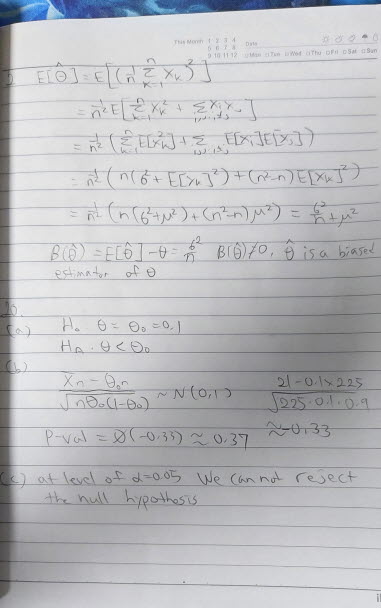 This Month 1 2 3 4 5 6 7 8 9 10 11 12 Date
□Mon □Tue □Wed □Thu □Fri □Sat □Sun
2. E[θ̂] = E[(1/n Σ_{k=1}^{n} X_k)²]
= 1/n² E[Σ_{k=1}^{n} X_k² + Σ_{i,j, i≠j} X_i X_j]
= 1/n² (Σ_{k=1}^{n} E[X_k²] + Σ_{i,j, i≠j} E[X_i]E[X_j])
= 1/n² (n(σ² + E[X_k]²) + (n²-n)E[X_k]²)
= 1/n² (n(σ²+μ²) + (n²-n)μ²) = σ²/n + μ²
B(θ̂) = E[θ̂] - θ = σ²/n B(θ̂)≠0, θ̂ is a biased
estimator of θ
(a) H₀ θ = θ₀ = 0.1
H_A . θ < θ₀
(b)
X_n - θ₀n / √(nθ₀(1-θ₀)) ~ N(0,1) 21 - 0.1×225 / √(225·0.1·0.9)
≈ -0.33
P-val = Ø(-0.33) ≈ 0.37
(c) at level of α=0.05 We can not reject
the null hypothosis